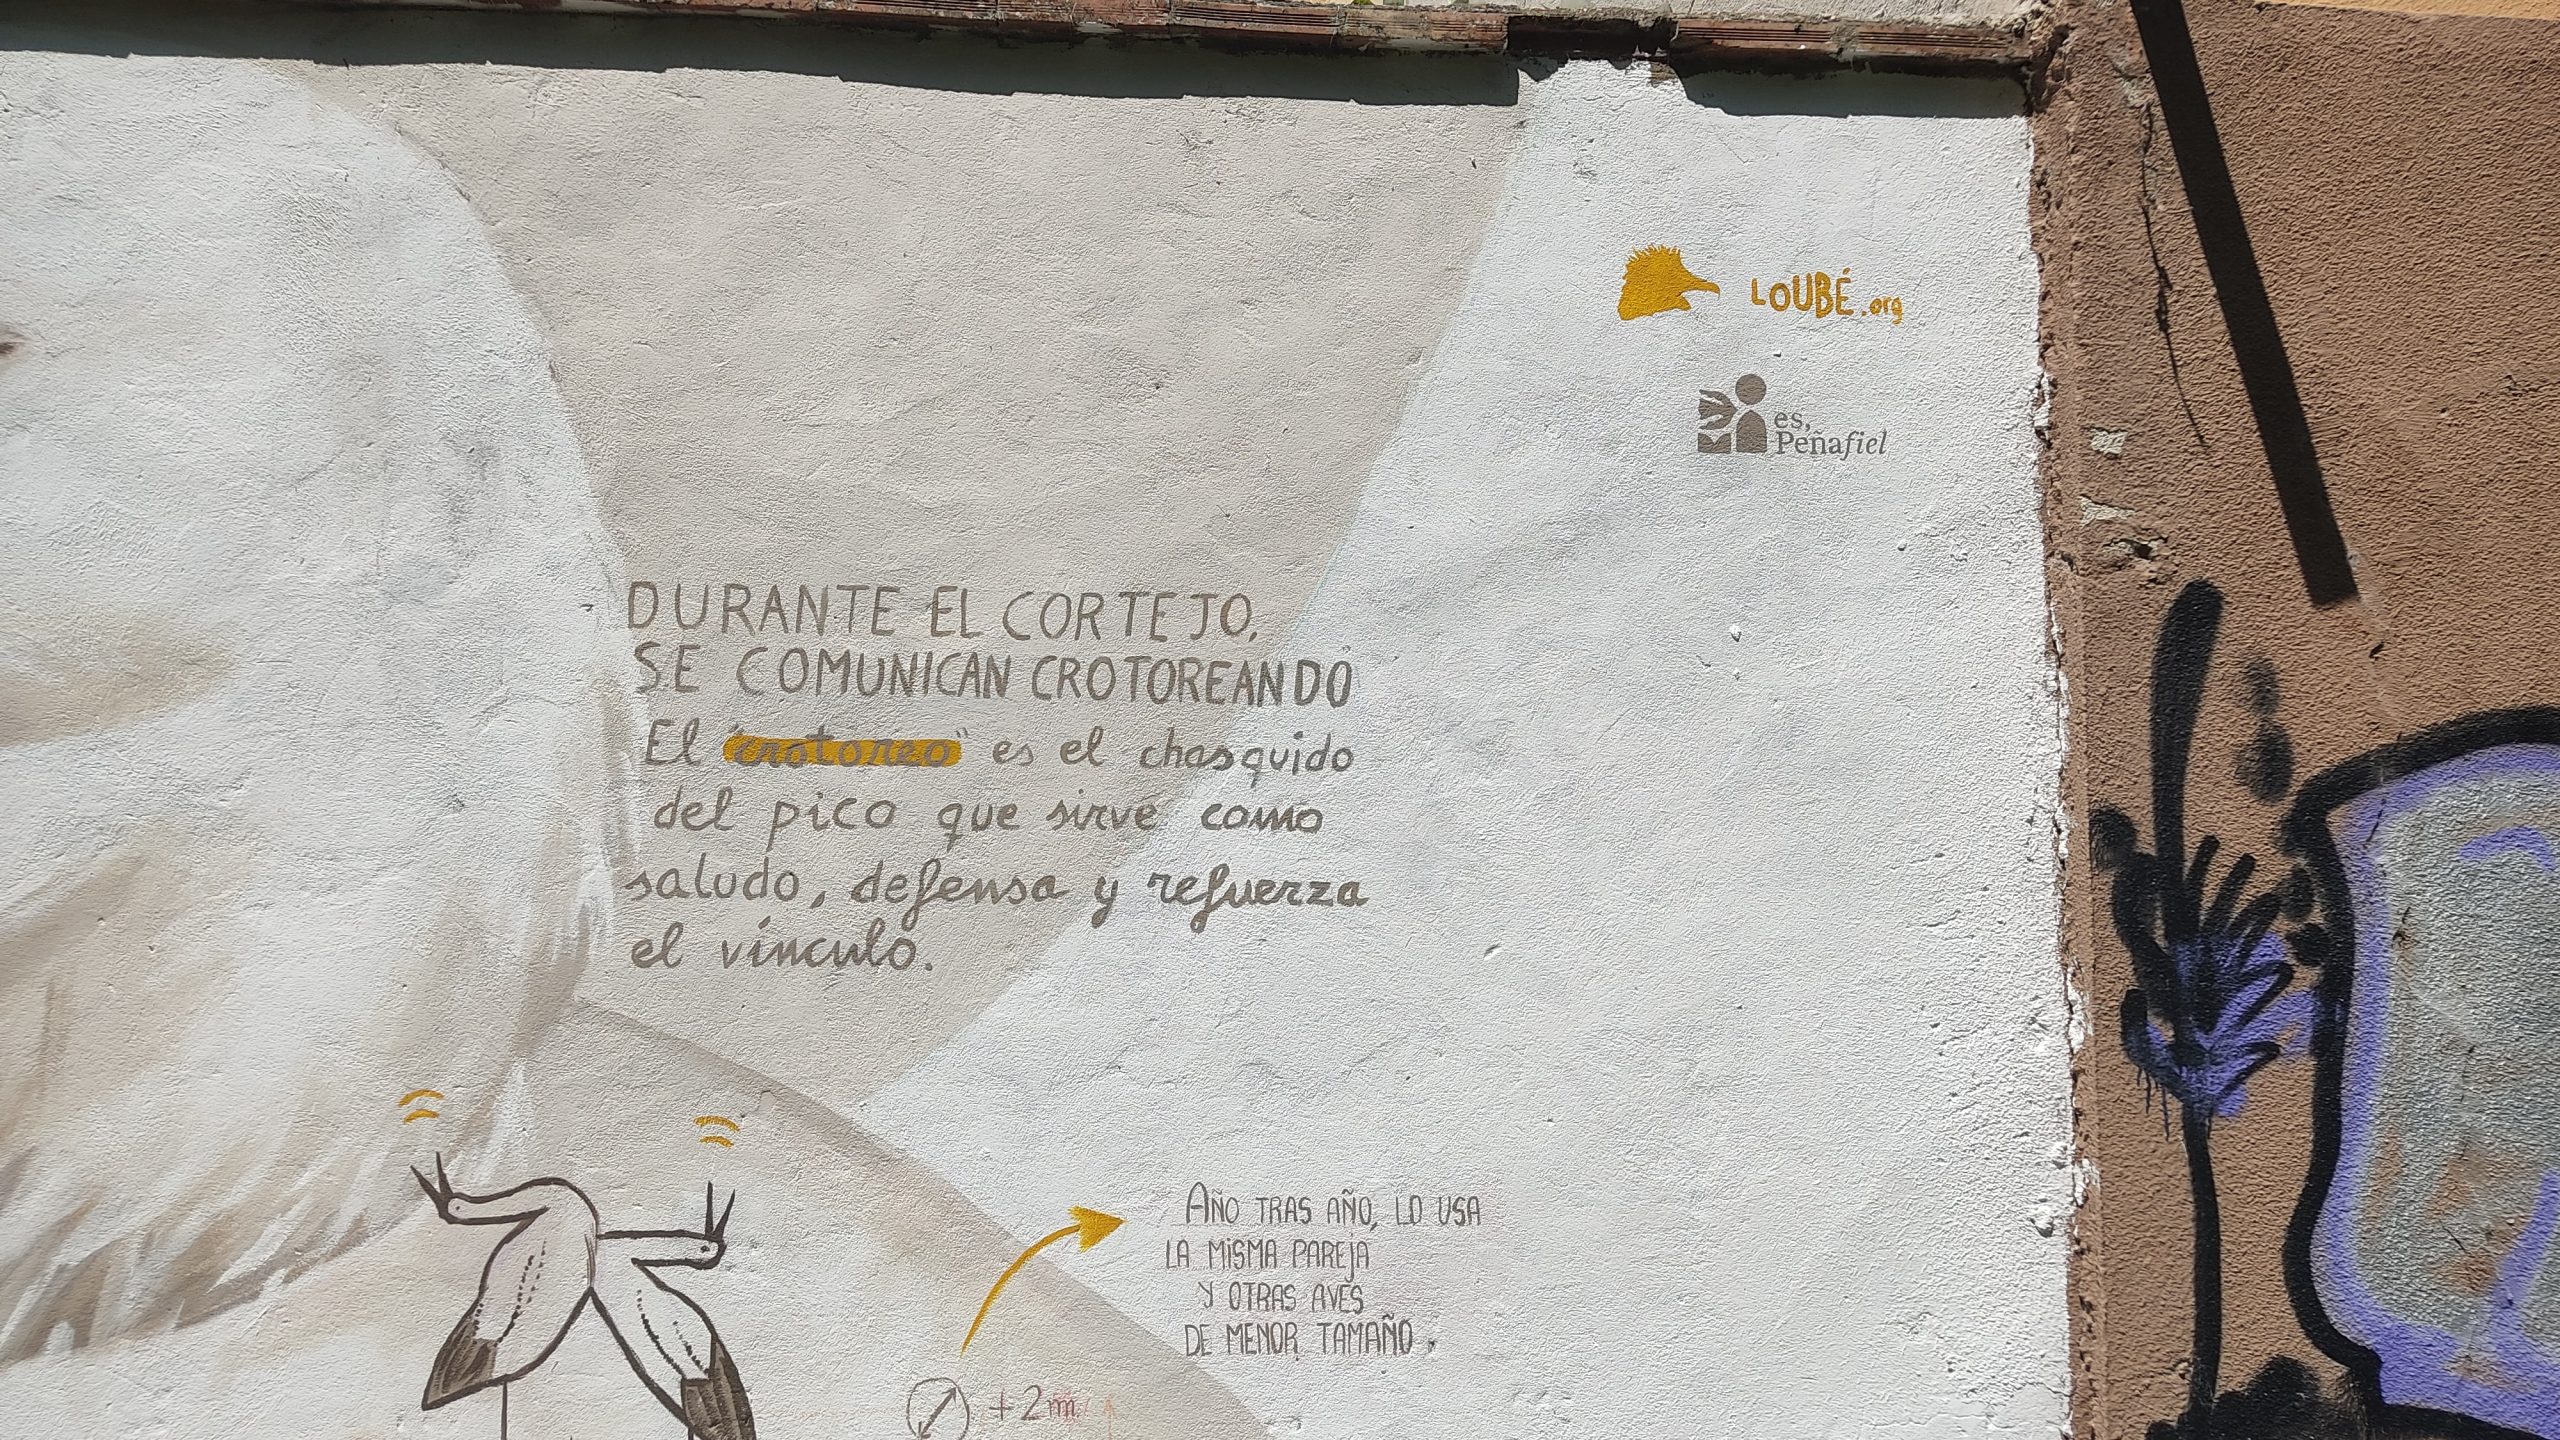 LOUBÉ.org
es,
Peñafiel
DURANTE EL CORTEJO,
SE COMUNICAN CROTOREANDO
El "crotoreo" es el chasquido
del pico que sirve como
saludo, defensa y refuerza
el vínculo.
AÑO TRAS AÑO, LO USA
LA MISMA PAREJA
Y OTRAS AVES
DE MENOR TAMAÑO.
+2m